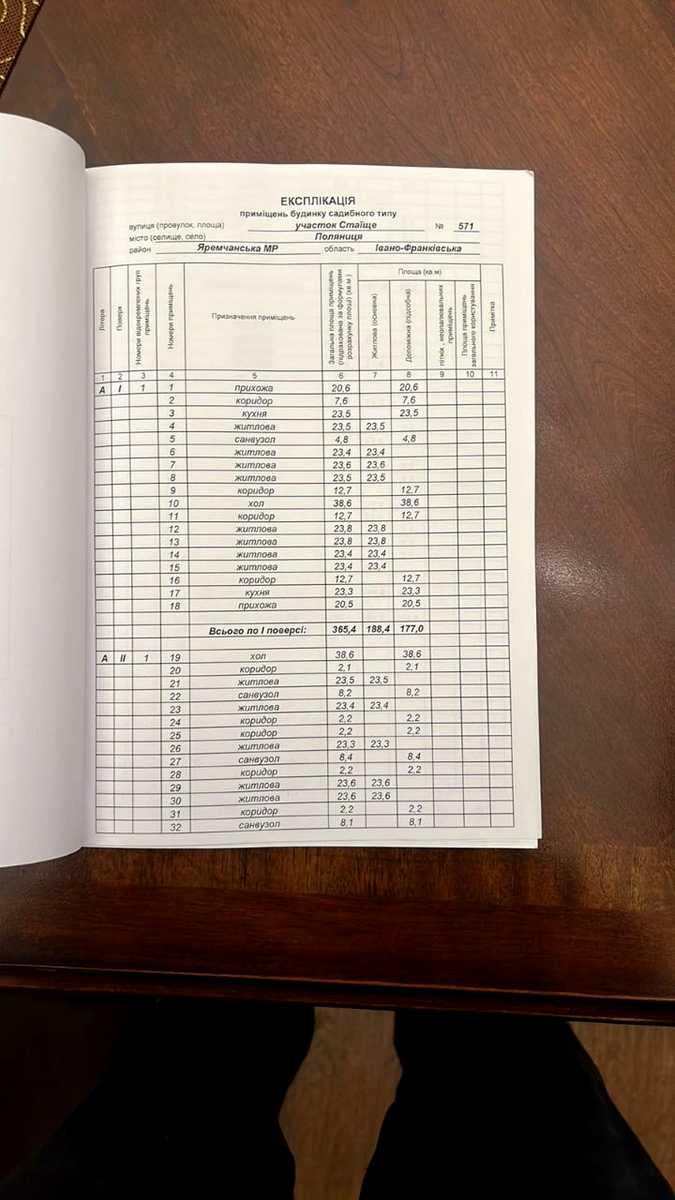 ЕКСПЛІКАЦІЯ
приміщень будинку садибного типу
вулиця (провулок, площа) участок Стаїще № 571
місто (селище, село) Поляниця
район Яремчанська МР область Івано-Франківська
Літера Поверх Номери відокремлених груп приміщень Номери приміщень Призначення приміщень Загальна площа приміщень (підрахована за формулами розрахунку площ) (кв.м.) Площа (кв.м) Житлова (основна) Допоміжна (підсобна) літніх, неопалювальних приміщень Площа приміщень загального користування Примітка
1 2 3 4 5 6 7 8 9 10 11
А І 1 1 прихожа 20,6 20,6
2 коридор 7,6 7,6
3 кухня 23,5 23,5
4 житлова 23,5 23,5
5 санвузол 4,8 4,8
6 житлова 23,4 23,4
7 житлова 23,6 23,6
8 житлова 23,5 23,5
9 коридор 12,7 12,7
10 хол 38,6 38,6
11 коридор 12,7 12,7
12 житлова 23,8 23,8
13 житлова 23,8 23,8
14 житлова 23,4 23,4
15 житлова 23,4 23,4
16 коридор 12,7 12,7
17 кухня 23,3 23,3
18 прихожа 20,5 20,5
Всього по І поверсі: 365,4 188,4 177,0
А ІІ 1 19 хол 38,6 38,6
20 коридор 2,1 2,1
21 житлова 23,5 23,5
22 санвузол 8,2 8,2
23 житлова 23,4 23,4
24 коридор 2,2 2,2
25 коридор 2,2 2,2
26 житлова 23,3 23,3
27 санвузол 8,4 8,4
28 коридор 2,2 2,2
29 житлова 23,6 23,6
30 житлова 23,6 23,6
31 коридор 2,2 2,2
32 санвузол 8,1 8,1